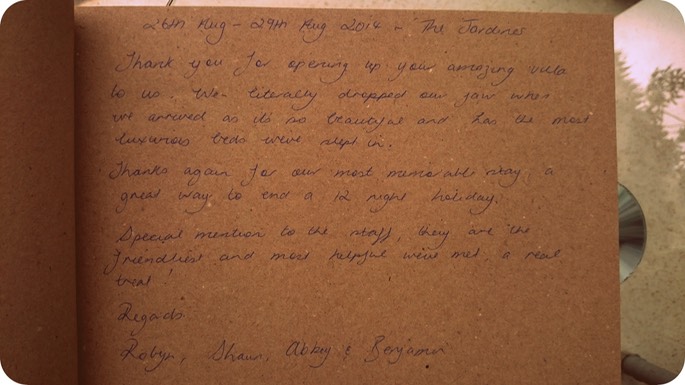 26th Aug - 29th Aug 2014 - The Jardines
Thank you for opening up your amazing villa
to us. We literally dropped our jaw when
we arrived as it's so beautiful and has the most
luxurious beds we've slept in.
Thanks again for our most memorable stay, a
great way to end a 12 night holiday.
Special mention to the staff, they are the
friendliest and most helpful we've met, a real
treat!
Regards
Robyn, Shaun, Abbey & Benjamin